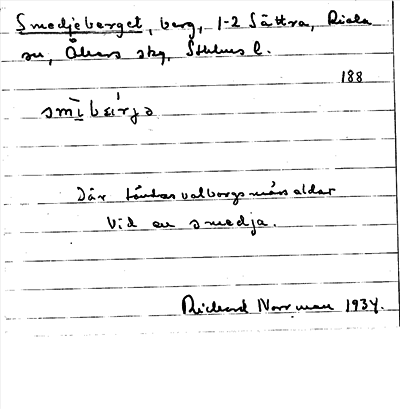 Smedjeberget, berg, 1-2 Sättra, Riala
sn, Åkers skg, Sthlms l.
188
smībɛírjə
Där tändas valborgsmässaldar
vid en smedja.
Richard Norrman 1934.